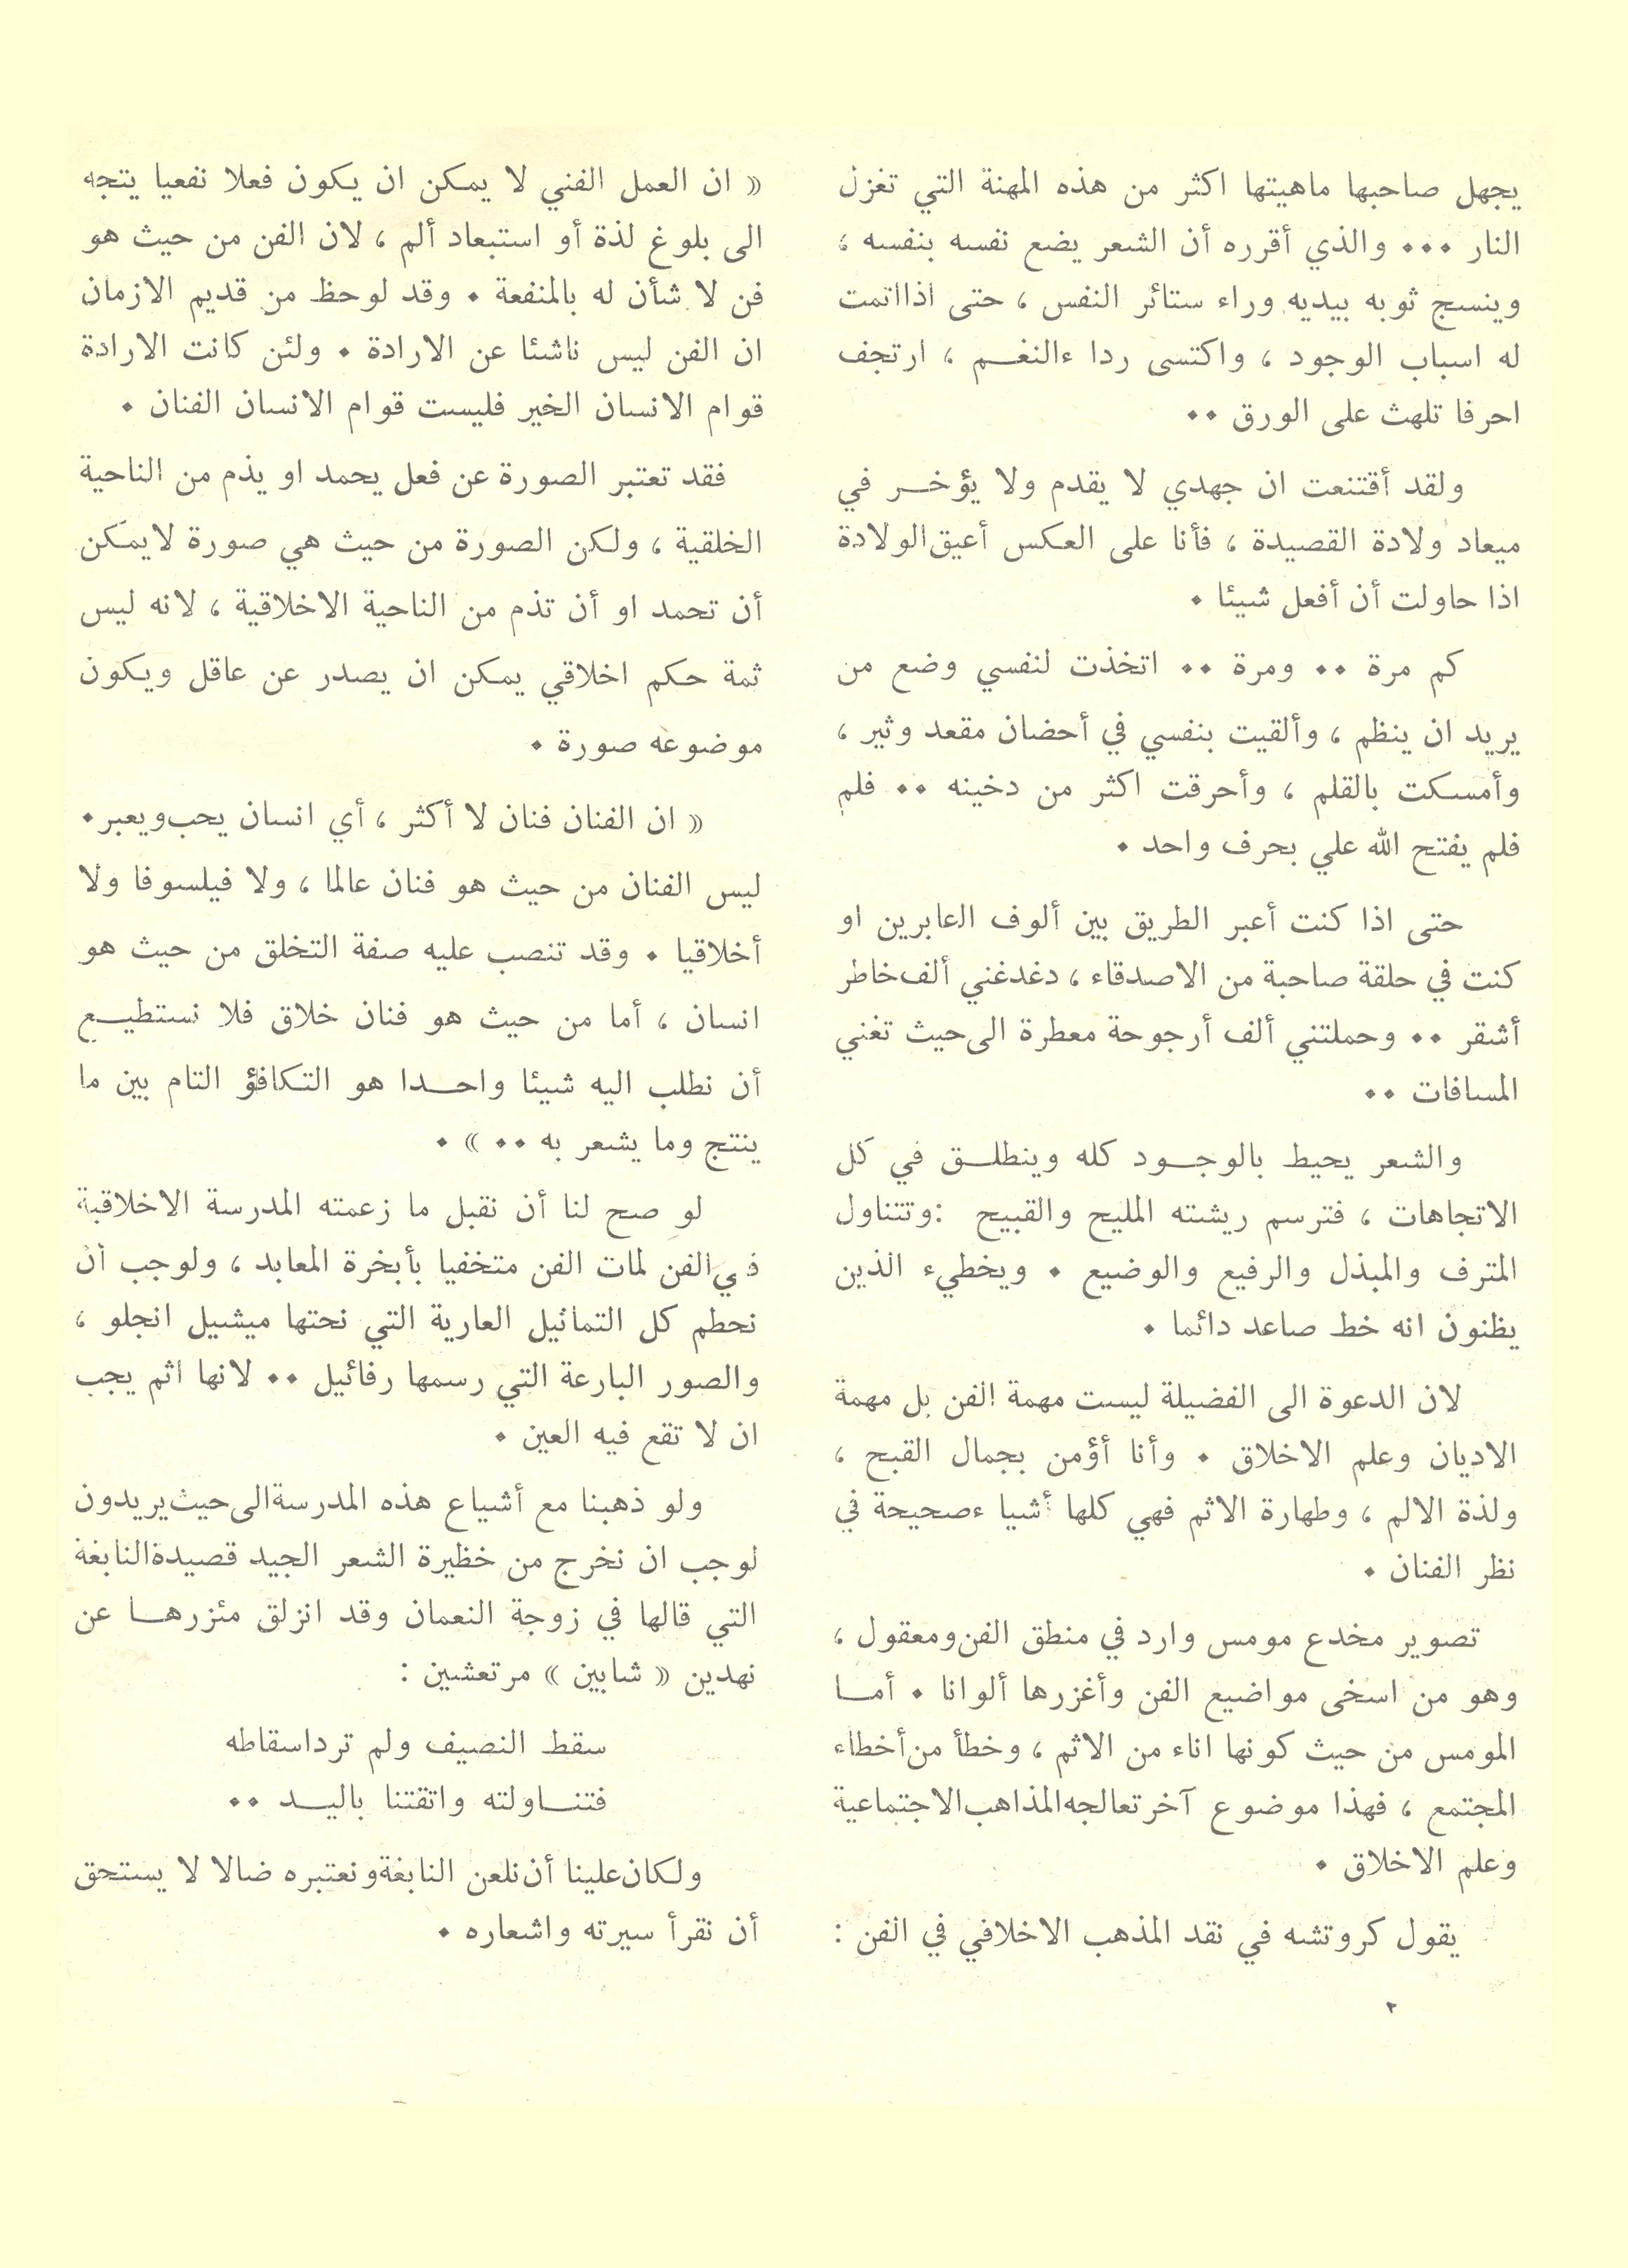 يجهل صاحبها ماهيتها اكثر من هذه المهنة التي تغزل
النار ٠٠٠ والذي أقرره أن الشعر يضع نفسه بنفسه ،
وينسج ثوبه بيديه وراء ستائر النفس ، حتى اذااتمت
له اسباب الوجود ، واكتسى ردا ءالنغم ، ارتجف
احرفا تلهث على الورق ٠٠
ولقد أقتنعت ان جهدي لا يقدم ولا يؤخر في
ميعاد ولادة القصيدة ، فأنا على العكس أعيق الولادة
اذا حاولت أن أفعل شيئا ٠
كم مرة ٠٠ ومرة ٠٠ اتخذت لنفسي وضع من
يريد ان ينظم ، وألقيت بنفسي في أحضان مقعد وثير ،
وأمسكت بالقلم ، وأحرقت اكثر من دخينه ٠٠ فلم
فلم يفتح الله علي بحرف واحد ٠
حتى اذا كنت أعبر الطريق بين ألوف العابرين او
كنت في حلقة صاحبة من الاصدقاء ، دغدغني ألف خاطر
أشقر ٠٠ وحملتني ألف أرجوحة معطرة الى حيث تغني
المسافات ٠٠
والشعر يحيط بالوجود كله وينطلق في كل
الاتجاهات ، فترسم ريشته المليح والقبيح :وتتناول
المترف والمبذل والرفيع والوضيع ٠ ويخطيء الذين
يظنون انه خط صاعد دائما ٠
لان الدعوة الى الفضيلة ليست مهمة الفن بل مهمة
الاديان وعلم الاخلاق ٠ وأنا أؤمن بجمال القبح ،
ولذة الالم ، وطهارة الاثم فهي كلها أشيا ءصحيحة في
نظر الفنان ٠
تصوير مخدع مومس وارد في منطق الفن ومعقول ،
وهو من اسخى مواضيع الفن وأغزرها ألوانا ٠ أما
المومس من حيث كونها اناء من الاثم ، وخطأ من أخطاء
المجتمع ، فهذا موضوع آخر تعالجه المذاهب الاجتماعية
وعلم الاخلاق ٠
يقول كروتشه في نقد المذهب الاخلافي في الفن :
٢
« ان العمل الفني لا يمكن ان يكون فعلا نفعيا يتجه
الى بلوغ لذة أو استبعاد ألم ، لان الفن من حيث هو
فن لا شأن له بالمنفعة ٠ وقد لوحظ من قديم الازمان
ان الفن ليس ناشئا عن الارادة ٠ ولئن كانت الارادة
قوام الانسان الخير فليست قوام الانسان الفنان ٠
فقد تعتبر الصورة عن فعل يحمد او يذم من الناحية
الخلقية ، ولكن الصورة من حيث هي صورة لايمكن
أن تحمد او أن تذم من الناحية الاخلاقية ، لانه ليس
ثمة حكم اخلاقي يمكن ان يصدر عن عاقل ويكون
موضوعه صورة ٠
« ان الفنان فنان لا أكثر ، أي انسان يحب ويعبر ٠
ليس الفنان من حيث هو فنان عالما ، ولا فيلسوفا ولا
أخلاقيا ٠ وقد تنصب عليه صفة التخلق من حيث هو
انسان ، أما من حيث هو فنان خلاق فلا نستطيع
أن نطلب اليه شيئا واحدا هو التكافؤ التام بين ما
ينتج وما يشعر به ٠٠ » ٠
لو صح لنا أن نقبل ما زعمته المدرسة الاخلاقية
في الفن لمات الفن متخفيا بأبخرة المعابد ، ولوجب أن
نحطم كل التماثيل العارية التي نحتها ميشيل انجلو ،
والصور البارعة التي رسمها رفائيل ٠٠ لانها اثم يجب
ان لا تقع فيه العين ٠
ولو ذهبنا مع أشياع هذه المدرسة الى حيث يريدون
لوجب ان نخرج من خظيرة الشعر الجيد قصيدة النابغة
التي قالها في زوجة النعمان وقد انزلق مئزرها عن
نهدين « شابين » مرتعشين :
سقط النصيف ولم ترد اسقاطه
فتناولته واتقتنا باليد ٠٠
ولكان علينا أن نلعن النابغة ونعتبره ضالا لا يستحق
أن نقرأ سيرته واشعاره ٠